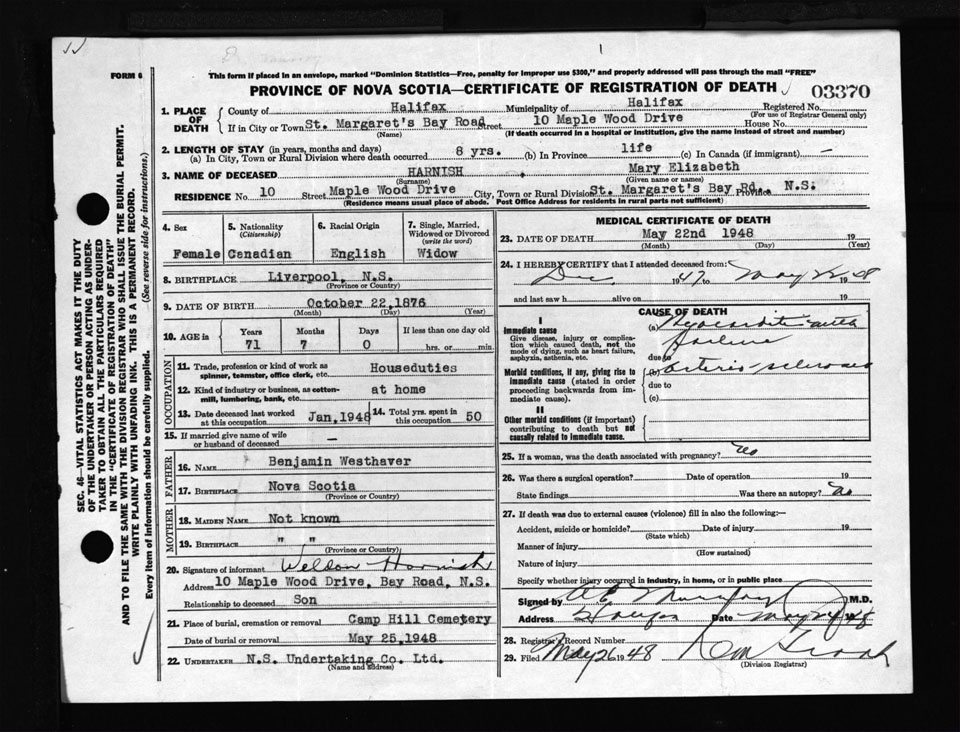 FORM 6
This form if placed in an envelope, marked "Dominion Statistics—Free, penalty for improper use $300," and properly addressed will pass through the mail "FREE"
PROVINCE OF NOVA SCOTIA—CERTIFICATE OF REGISTRATION OF DEATH
03370
1. PLACE OF DEATH
County of Halifax Municipality of Halifax Registered No.
(For use of Registrar General only)
If in City or Town St. Margaret's Bay Road Street 10 Maple Wood Drive House No.
(Name) (If death occurred in a hospital or institution, give the name instead of street and number)
2. LENGTH OF STAY (in years, months and days)
(a) In City, Town or Rural Division where death occurred 8 yrs. (b) In Province life (c) In Canada (if immigrant) —
3. NAME OF DECEASED HARNISH Mary Elizabeth
(Surname) (Given name or names)
RESIDENCE No. 10 Street Maple Wood Drive City, Town or Rural Division St. Margaret's Bay Rd. Province N.S.
(Residence means usual place of abode. Post Office Address for residents in rural parts not sufficient)
4. Sex
Female
5. Nationality
(Citizenship)
Canadian
6. Racial Origin
English
7. Single, Married, Widowed or Divorced
(write the word)
Widow
8. BIRTHPLACE Liverpool, N.S.
(Province or Country)
9. DATE OF BIRTH October 22, 1876
(Month) (Day) (Year)
10. AGE in Years Months Days If less than one day old
71 7 0 hrs. or min.
OCCUPATION
11. Trade, profession or kind of work as spinner, teamster, office clerk, etc. Houseduties
12. Kind of industry or business, as cotton-mill, lumbering, bank, etc. at home
13. Date deceased last worked at this occupation Jan, 1948 14. Total yrs. spent in this occupation 50
15. If married give name of wife or husband of deceased —
FATHER
16. NAME Benjamin Westhaver
17. BIRTHPLACE Nova Scotia
(Province or Country)
MOTHER
18. MAIDEN NAME Not known
19. BIRTHPLACE " "
(Province or Country)
20. Signature of informant Weldon Harnish
Address 10 Maple Wood Drive, Bay Road, N.S.
Relationship to deceased Son
21. Place of burial, cremation or removal Camp Hill Cemetery
Date of burial or removal May 25, 1948
22. UNDERTAKER N.S. Undertaking Co. Ltd.
(Name and address)
MEDICAL CERTIFICATE OF DEATH
23. DATE OF DEATH May 22nd 1948 19
(Month) (Day) (Year)
24. I HEREBY CERTIFY that I attended deceased from:
Dec 1947 to May 22 1948
and last saw h alive on 19
CAUSE OF DEATH
I
Immediate cause
Give disease, injury or complication which caused death, not the mode of dying, such as heart failure, asphyxia, asthenia, etc.
(a) Myocarditis with failure
due to
Morbid conditions, if any, giving rise to immediate cause (stated in order proceeding backwards from immediate cause).
(b) Arterio-sclerosis
due to
(c)
II
Other morbid conditions (if important) contributing to death but not causally related to immediate cause.
25. If a woman, was the death associated with pregnancy? No
26. Was there a surgical operation? Date of operation 19
State findings Was there an autopsy? No
27. If death was due to external causes (violence) fill in also the following:—
Accident, suicide or homicide? Date of injury 19
(State which)
Manner of injury
(How sustained)
Nature of injury
Specify whether injury occurred in industry, in home, or in public place
Signed by M.D.
Address Halifax Date May 24 48
28. Registrar's Record Number
29. Filed May 26 1948
(Division Registrar)
SEC. 46—VITAL STATISTICS ACT MAKES IT THE DUTY
OF THE UNDERTAKER OR PERSON ACTING AS UNDER-
TAKER TO OBTAIN ALL THE PARTICULARS REQUIRED
IN THE "CERTIFICATE OF REGISTRATION OF DEATH"
AND TO FILE THE SAME WITH THE DIVISION REGISTRAR WHO SHALL ISSUE THE BURIAL PERMIT.
WRITE PLAINLY WITH UNFADING INK. THIS IS A PERMANENT RECORD.
Every item of information should be carefully supplied. (See reverse side for instructions.)